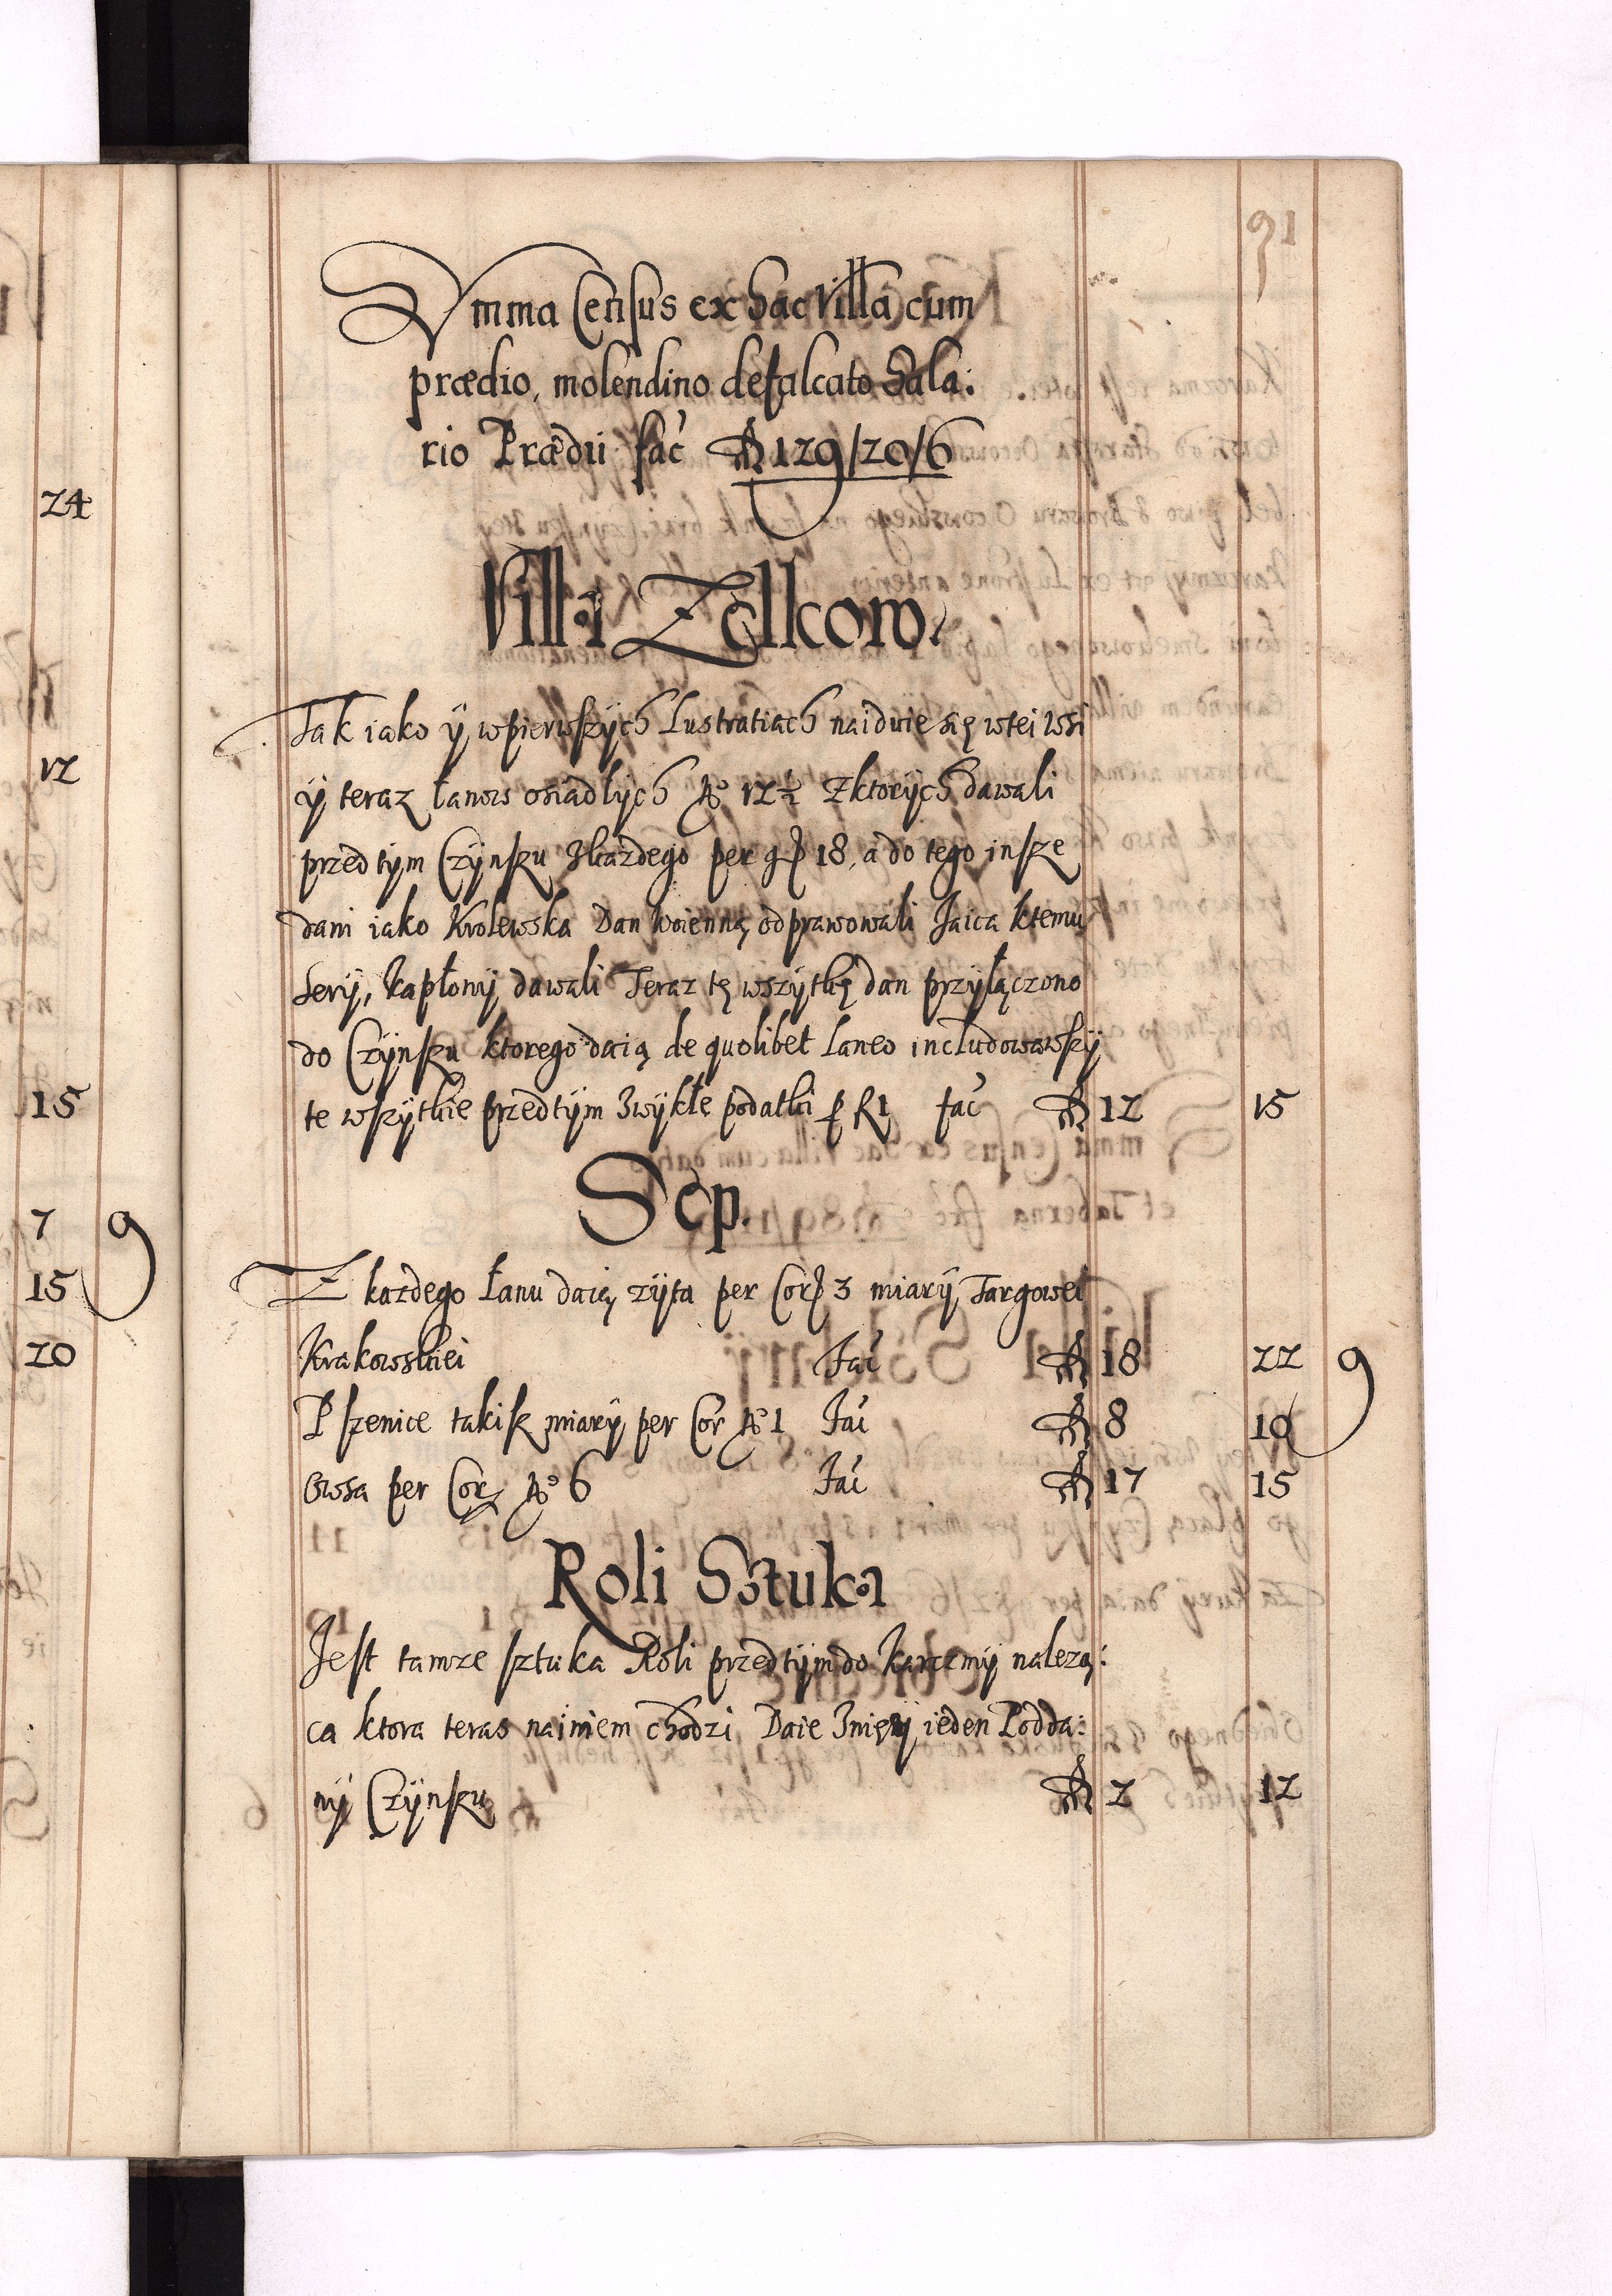 91
Summa Census ex hac Villa cum
prædio, molendino defalcato Sala:
rio Prædii fac̃ fl 129/20/6
Villa Zelkow.
Tak iako ÿ wpierwszÿch Lustratiach naiduie się wtei wsi
ÿ teraz łanow osiadlÿch No 12½ Zktorÿch dawali
przedtÿm Czÿnszu Zkazdego per gr 18, a do tego insze
dani iako Krolewska Dan Woienną odprawowali Jaica ktemu
Serÿ, Kapłonÿ dawali Teraz tę wszÿtkę dan przÿłączono
do Czÿnszu ktorego daią de quolibet Laneo includowawszÿ
te wszÿtkie przedtÿm Zwÿkłe podatki p fl 1 fac̃ fl 12 15
Sep.
Z kazdego Łanu daią zÿta per Cor 3 miarÿ Targowei
Krakowskiei Fac̃ fl 18 22 9
Pszenice takisz miarÿ per Cor No 1 Fac̃ fl 8 10
Owsa per Cor No 6 Fac̃ fl 17 15
Roli Sztuka
Jest tamze sztuka Roli przedtÿm do Karczmÿ nalezą:
ca ktora teras naimem chodzi Daie Znięÿ ieden Podda:
nÿ Czÿnszu fl 2 12
24
12
15
7 9
15
20